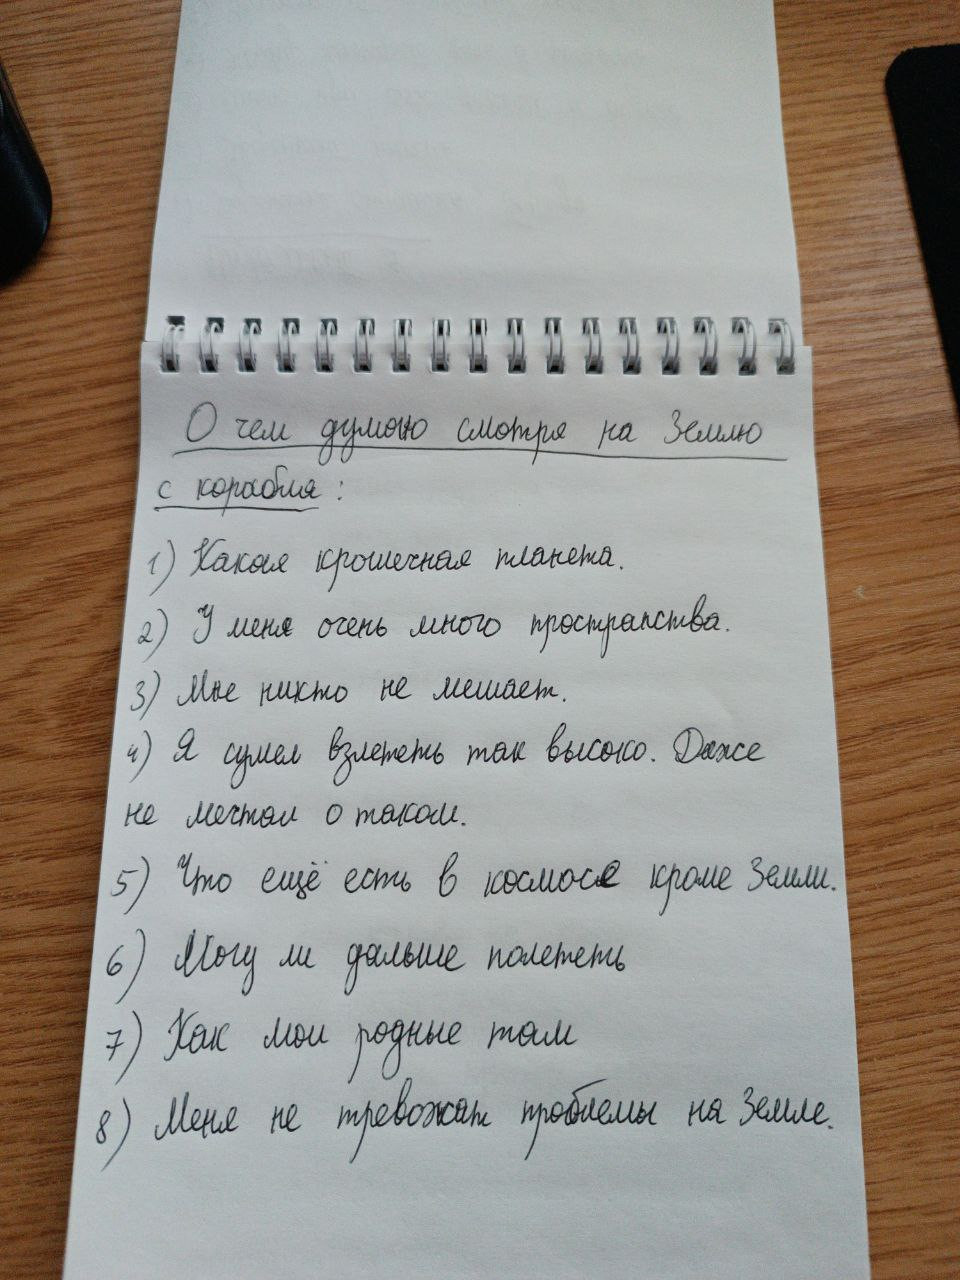 О чем думаю смотря на Землю
с корабля:
1) Какая крошечная планета.
2) У меня очень много пространства.
3) Мне никто не мешает.
4) Я сумел взлететь так высоко. Даже
не мечтал о таком.
5) Что ещё есть в космосе кроме Земли.
6) Могу ли дальше полететь
7) Как мои родные там
8) Меня не тревожат проблемы на Земле.